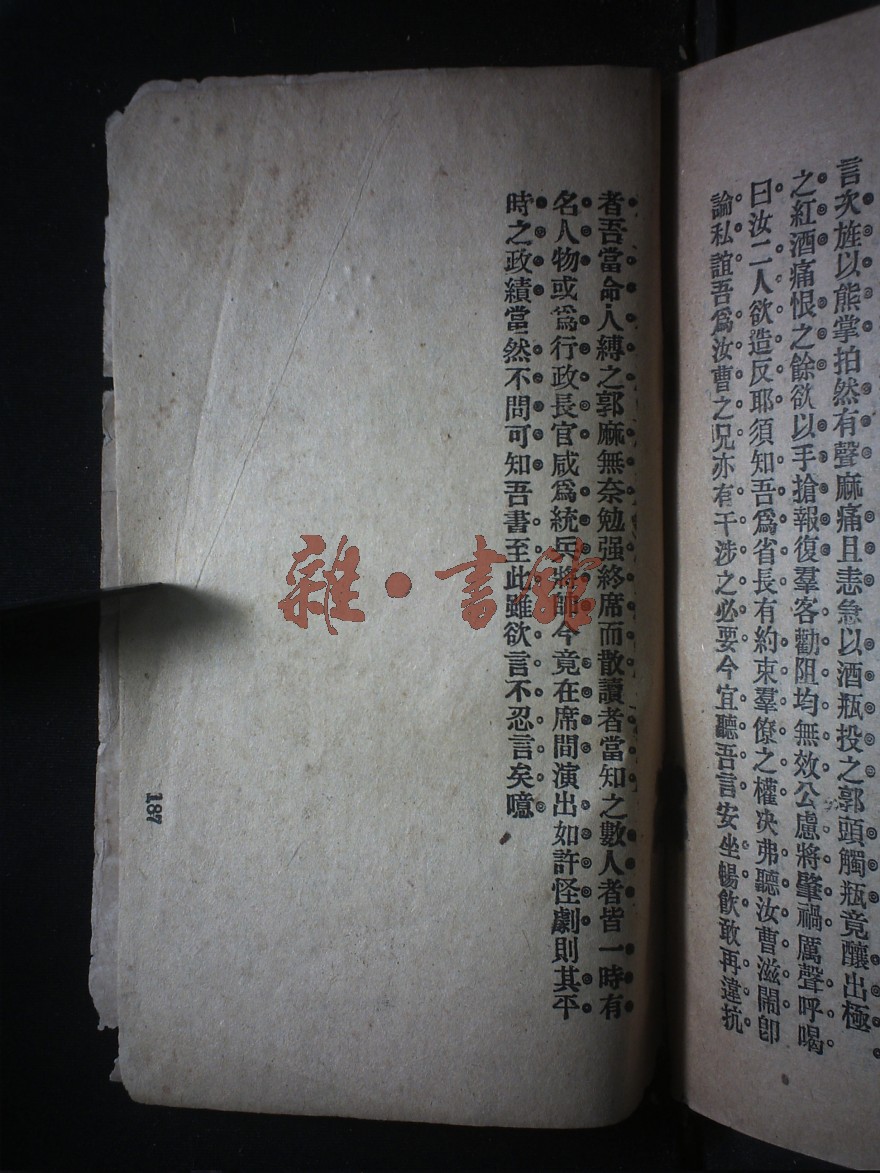 言次旌以熊掌拍然有聲麻痛且恚急以酒瓶投之郭頭觸瓶竟釀出極
之紅酒痛恨之餘欲以手搶報復羣客勸阻均無效公慮將肇禍厲聲呼喝
曰汝二人欲造反耶須知吾爲省長有約束羣僚之權决弗聽汝曹滋鬧卽
論私誼吾爲汝曹之兄亦有干涉之必要今宜聽吾言安坐暢飲敢再違抗
者吾當命人縛之郭麻無奈勉强終席而散讀者當知之數人者皆一時有
名人物或爲行政長官咸爲統兵將帥今竟在席間演出如許怪劇則其平
時之政績當然不問可知吾書至此雖欲言不忍言矣噫
187
雜·書館